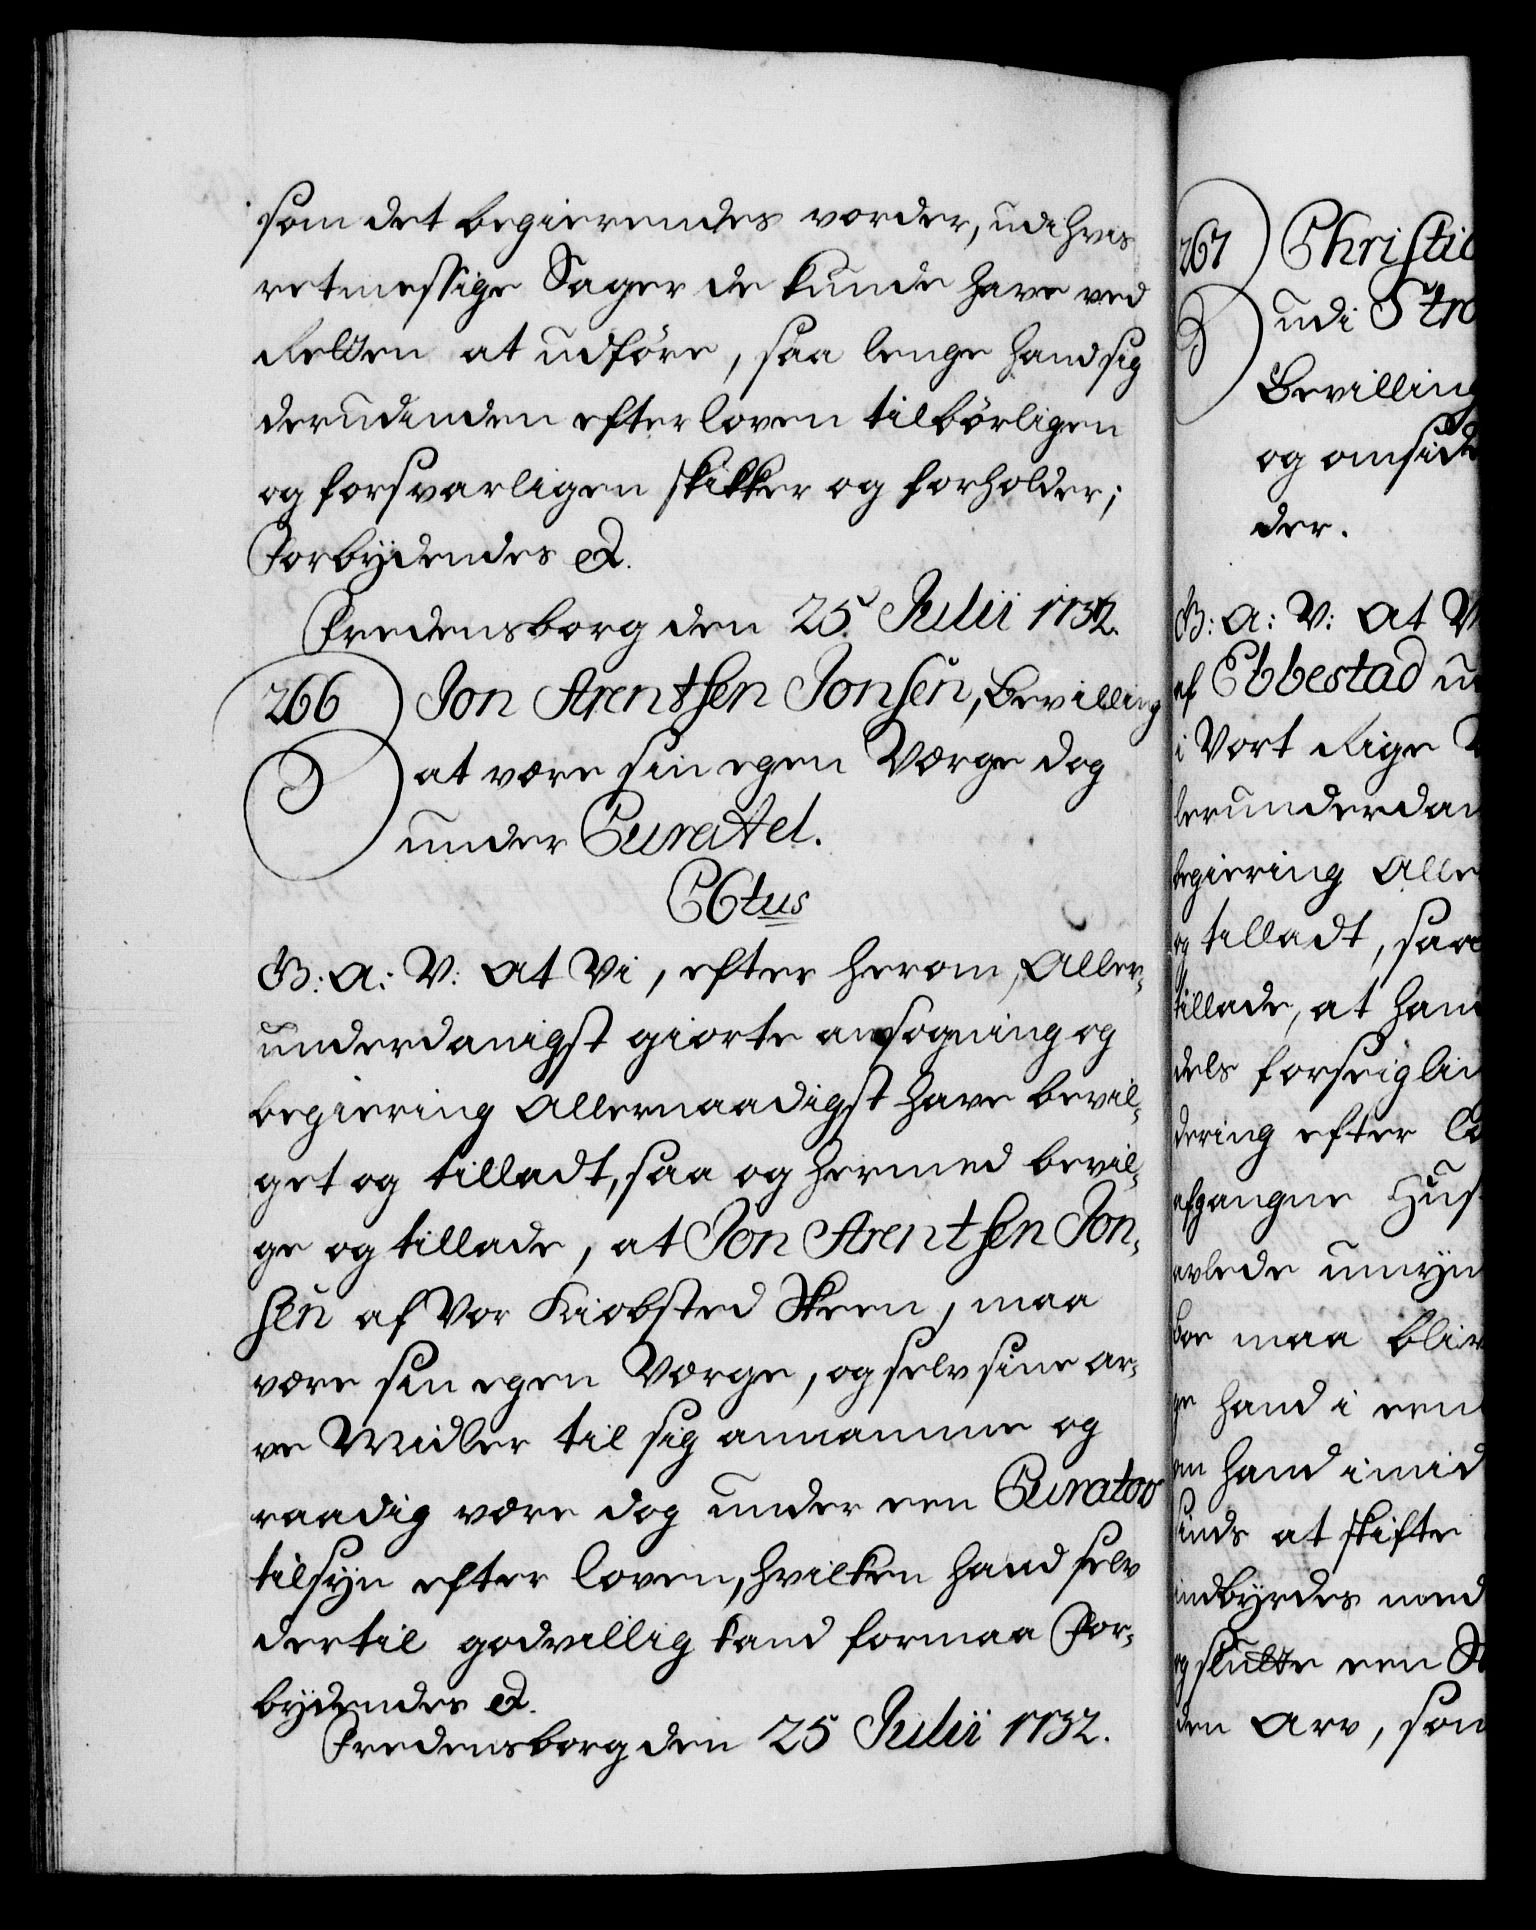 som det begierendes vorder, udi hvis
retmessige Sager de kunde have ved
Retten at udføre, saa lenge hand sig
derudinden efter loven tilbørligen
og forsvarligen skikker og forholder;
Forbydendes &.
Fredensborg den 25. Julii 1732.
266 Jon Arentsen Jonsen, Bevilling
at være sin egen Værge dog
under Curatel.
C6tus
G: A: V: At Vi, efter herom Aller-
underdanigst giorte ansøgning og
begiering Allernaadigst have bevil-
get og tilladt, saa og hermed bevil-
ge og tillade, at Jon Arentsen Jon-
sen af Vor Kiøbsted Skeen, maa
være sin egen Værge, og selv sine ar-
ve Midler til sig annamme og
raadig være dog under een Curators
tilsyn efter loven, hvilken hand selv
dertil godvillig kand formaa For-
bydendes &.
Fredensborg den 25 Julii 1732.
267 Christia
udi Stro
Bevilling
og omsid
der.
G: A: V: At V
af Ebbestad u
i Vort Rige
lerunderdan
begiering Alle
og tilladt, saa
tillade, at hand
dels forseiglin
dering efter Lo
afgangne Hus
avlede umyn
boe maa bliv
ge hand i een
en hand imid
inds at skifte
indbyrdes med
og slutte een S
den Arv, som